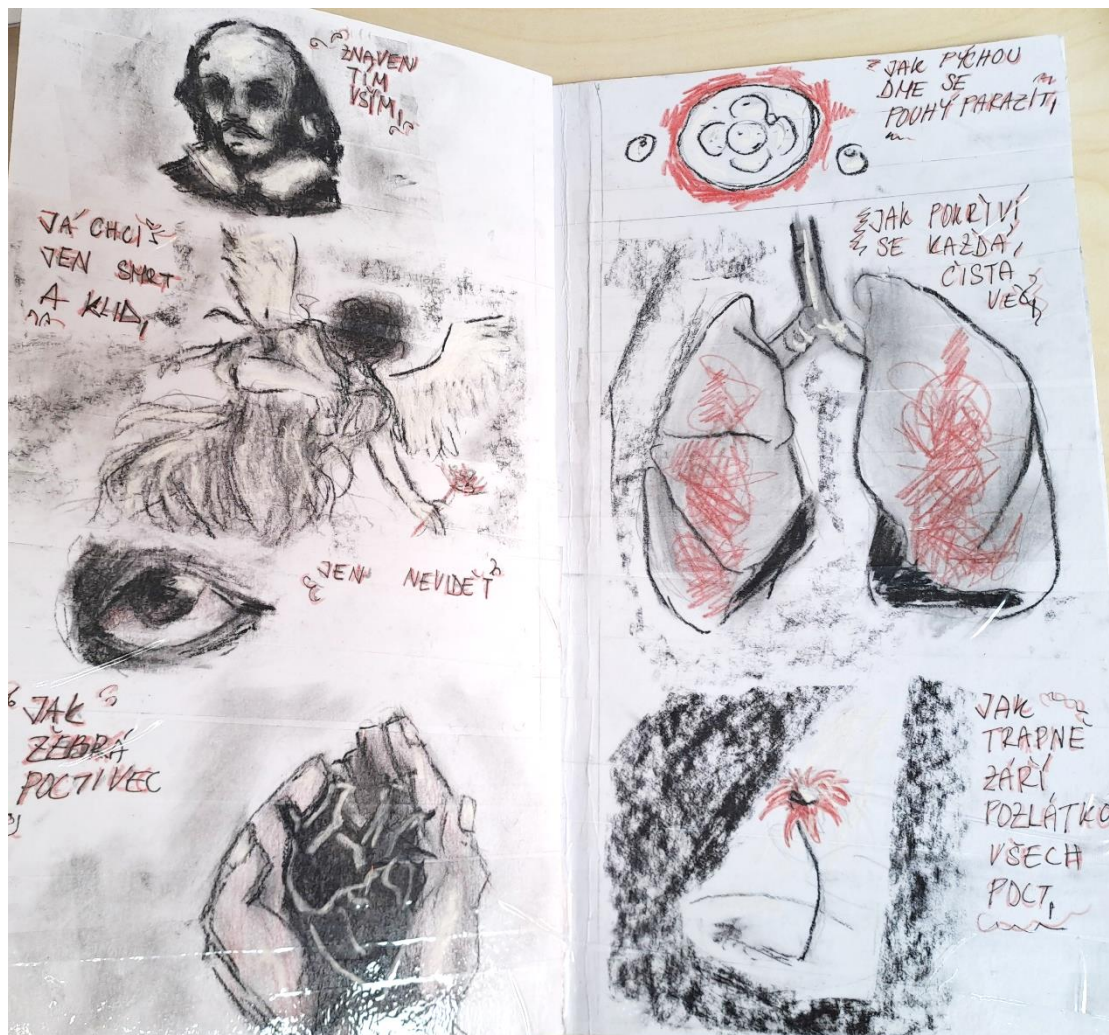 ZNAVEN
TÍM
VŠÍM,
JÁ CHCI
JEN SMRT
A KLID,
JEN NEVIDĚT
JAK
ŽEBRÁ
POCTIVEC
JAK PÝCHOU
DME SE
POUHÝ PARAZIT,
JAK POKŘIVÍ
SE KAŽDÁ,
ČISTÁ
VĚC,
JAK
TRAPNĚ
ZÁŘÍ
POZLÁTKO
VŠECH
POCT,